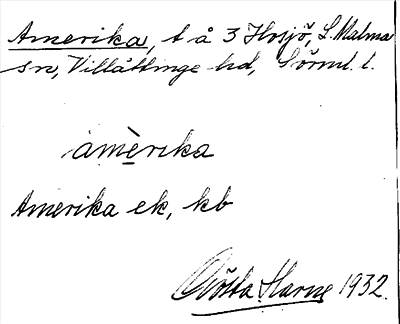 Amerika, t å 3 Hosjö, L. Malma
sn, Villåttinge hd, Sörml. l.
amèrika
Amerika ek, kb
Gösta Harne 1932.